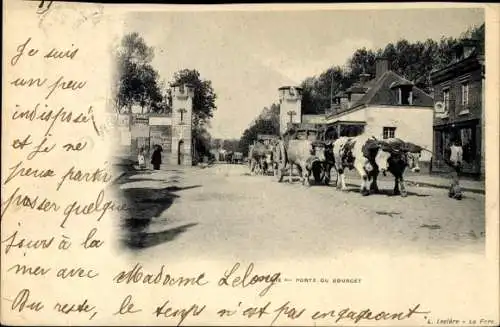 Je suis
un peu
indisposé
et je ne
peux partir
passer quelque
jours à la
mer avec Madame Lelong
Du reste, le temps n'est pas engageant
PORTE DU BOURGET
L. Leclère - La Fère